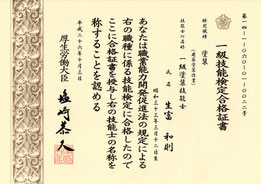 第一四-1-〇六〇-一-一〇〇二二号
一級技能検定合格証書
検定職種 塗装
(建築塗装作業)
技能士の名称 一級塗装技能士
氏名 生富和則
昭和三十三年三月十二日生
あなたは職業能力開発促進法の規定による
右の職種に係る技能検定に合格したので
ここに合格証書を授与し右の技能士の名称を
称することを認める
平成二十六年十月三日
厚生労働大臣
塩崎恭久